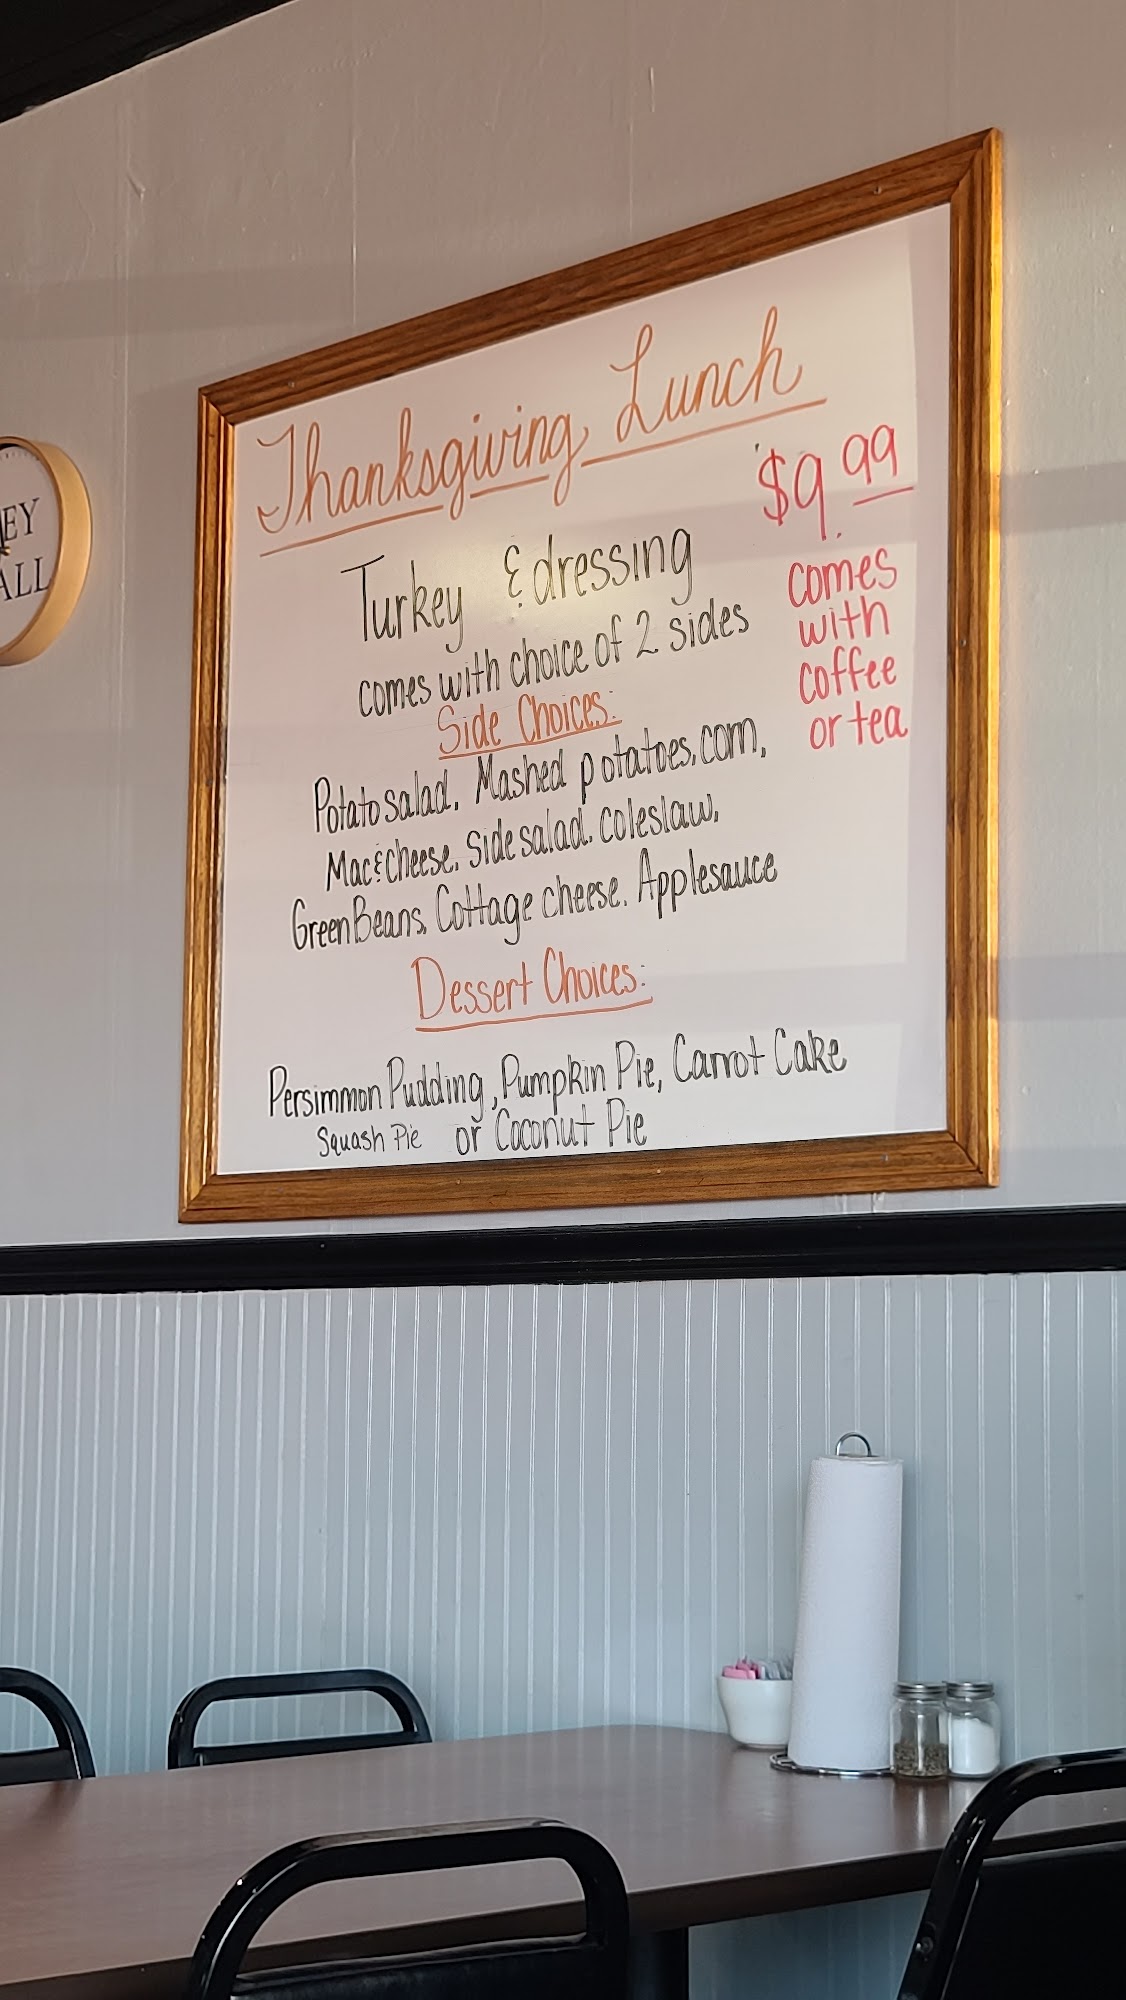 Thanksgiving Lunch
$9.99
comes
with
coffee
or tea
Turkey & dressing
comes with choice of 2 sides
Side Choices:
Potato salad, Mashed potatoes, corn,
Mac & Cheese, Side salad, coleslaw,
Green Beans, Cottage cheese, Applesauce
Dessert Choices:
Persimmon Pudding, Pumpkin Pie, Carrot Cake
Squash Pie or Coconut Pie
EY
ALL